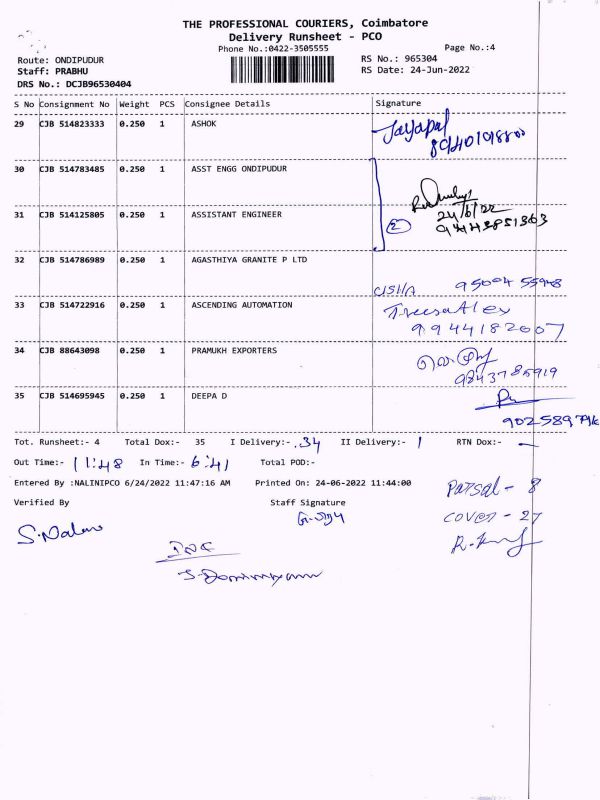 THE PROFESSIONAL COURIERS, Coimbatore
Delivery Runsheet - PCO
Phone No.:0422-3505555
Page No.:4
Route: ONDIPUDUR
RS No.: 965304
Staff: PRABHU
RS Date: 24-Jun-2022
DRS No.: DCJB96530404
S No Consignment No Weight PCS Consignee Details Signature
29 CJB 514823333 0.250 1 ASHOK Jayapal
30 CJB 514783485 0.250 1 ASST ENGG ONDIPUDUR
24/6/22
31 CJB 514125805 0.250 1 ASSISTANT ENGINEER
32 CJB 514786989 0.250 1 AGASTHIYA GRANITE P LTD
33 CJB 514722916 0.250 1 ASCENDING AUTOMATION TreesaAlex
9944182007
34 CJB 88643098 0.250 1 PRAMUKH EXPORTERS
9843785919
35 CJB 514695945 0.250 1 DEEPA D
Tot. Runsheet:- 4 Total Dox:- 35 I Delivery:- 34 II Delivery:- 1 RTN Dox:- -
Out Time:- 11:48 In Time:- 6:41 Total POD:-
Entered By :NALINIPCO 6/24/2022 11:47:16 AM Printed On: 24-06-2022 11:44:00
Parsal - 8
Verified By Staff Signature
cover - 27